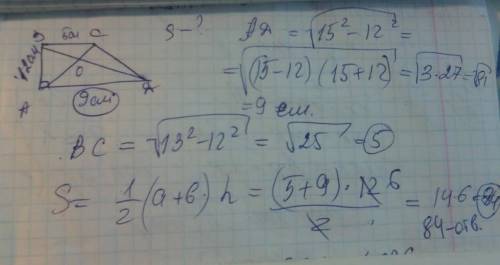 B 5см C
12см
O
A 9см Д
S-?
АД = √15² - 12² =
= √(15-12)(15+12) = √3·27 = √81
= 9 см.
BC = √13² - 12² = √25 = 5
S = 1/2 (a+b) · h = (5+9) · 12 6 / 2 = 14·6 = 84
84 - отв.